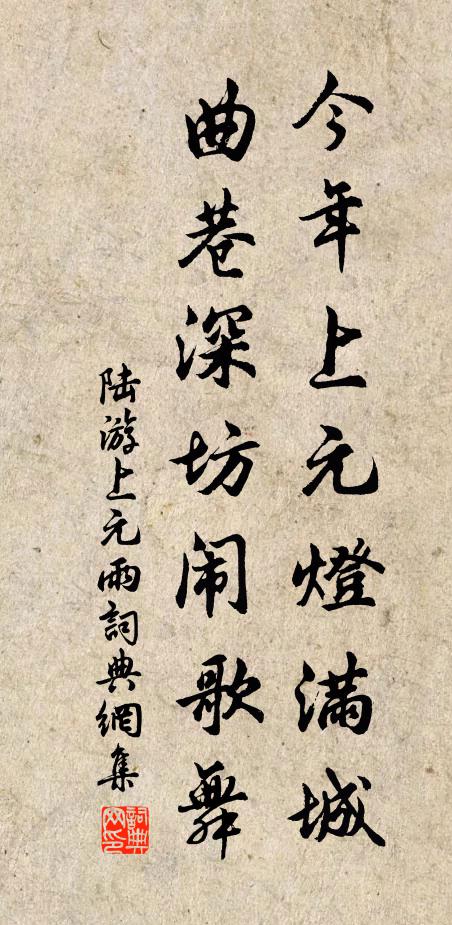 今年上元燈滿城
曲巷深坊闹歌舞
陆游上元雨詞典網集
詞典網印